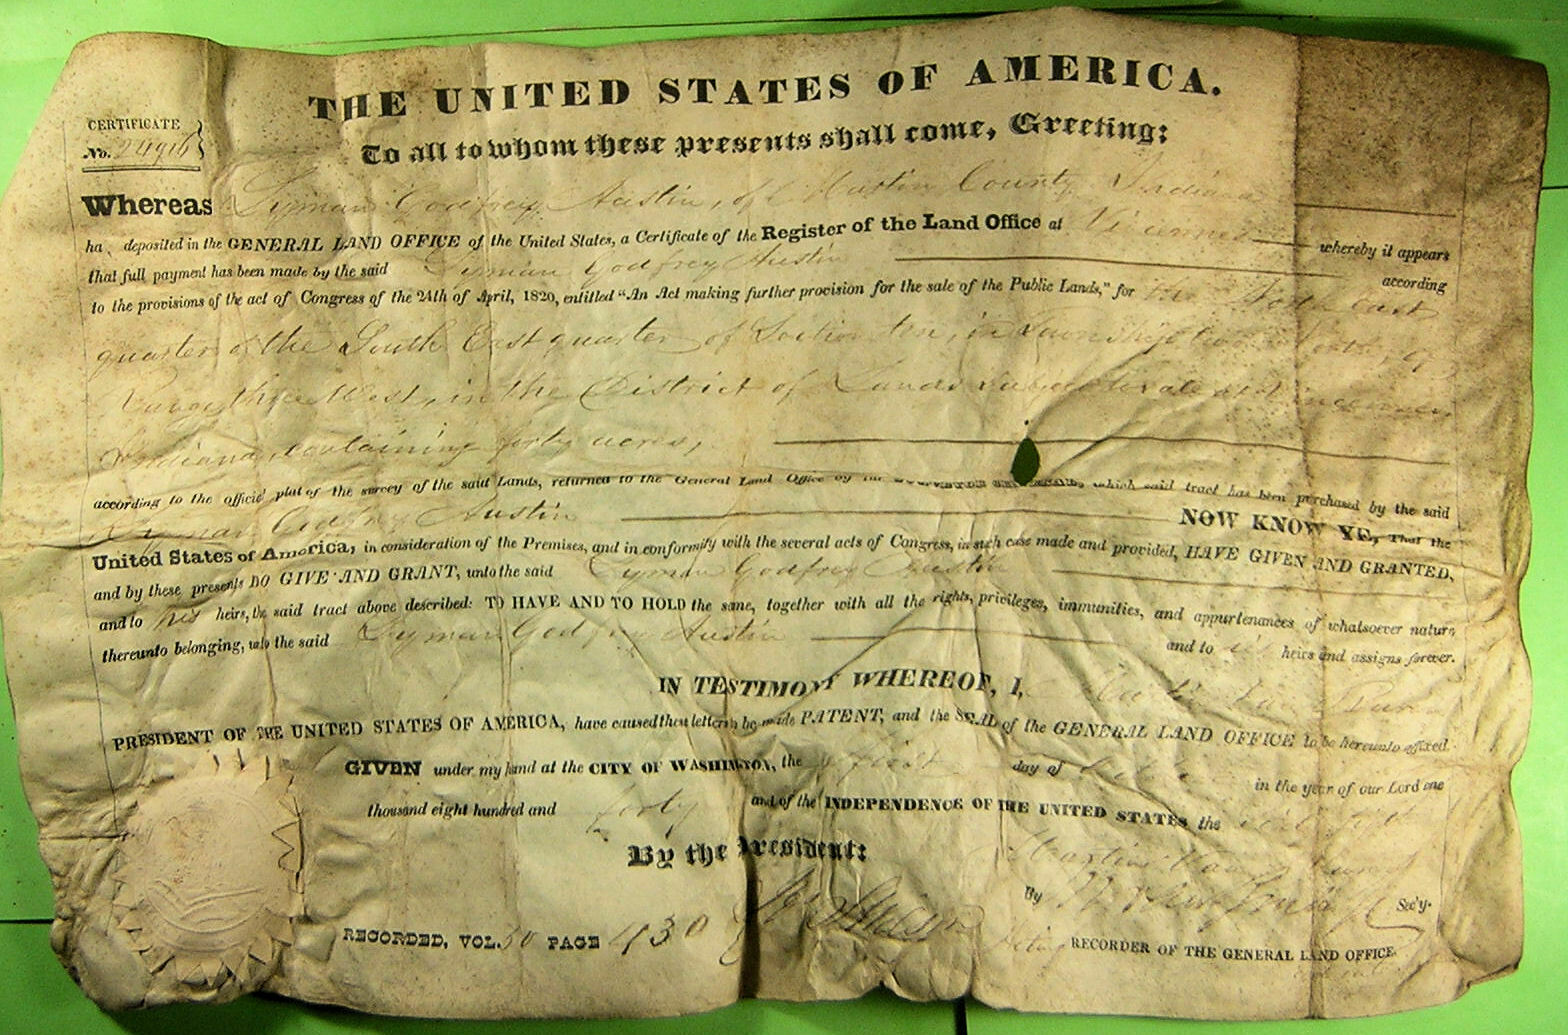 THE UNITED STATES OF AMERICA.
CERTIFICATE
No. 24916
To all to whom these presents shall come, Greeting:
Whereas Lyman Godfrey Austin, of Martin County Indiana
ha deposited in the GENERAL LAND OFFICE of the United States, a Certificate of the Register of the Land Office at Vincennes whereby it appears
that full payment has been made by the said Lyman Godfrey Austin according
to the provisions of the act of Congress of the 24th of April, 1820, entitled "An Act making further provision for the sale of the Public Lands," for the East
quarter of the South East quarter of Section ten, in Township two North, of
Range three West, in the District of Lands subject to sale at Vincennes
Indiana, containing forty acres,
according to the official plat of the survey of the said Lands, returned to the General Land Office by the SURVEYOR GENERAL, which said tract has been purchased by the said
Lyman Godfrey Austin NOW KNOW YE, That the
United States of America, in consideration of the Premises, and in conformity with the several acts of Congress, in such case made and provided, HAVE GIVEN AND GRANTED,
and by these presents DO GIVE AND GRANT, unto the said Lyman Godfrey Austin
and to his heirs, the said tract above described: TO HAVE AND TO HOLD the same, together with all the rights, privileges, immunities, and appurtenances of whatsoever nature
thereunto belonging, unto the said Lyman Godfrey Austin and to his heirs and assigns forever.
IN TESTIMONY WHEREOF, I, Martin Van Buren
PRESIDENT OF THE UNITED STATES OF AMERICA, have caused these letters to be made PATENT, and the SEAL of the GENERAL LAND OFFICE to be hereunto affixed.
GIVEN under my hand at the CITY OF WASHINGTON, the first day of October in the year of our Lord one
thousand eight hundred and forty and of the INDEPENDENCE OF THE UNITED STATES the
By the President: Martin Van Buren
By Sec'y.
RECORDED, VOL. 50 PAGE 430 Acting RECORDER OF THE GENERAL LAND OFFICE.